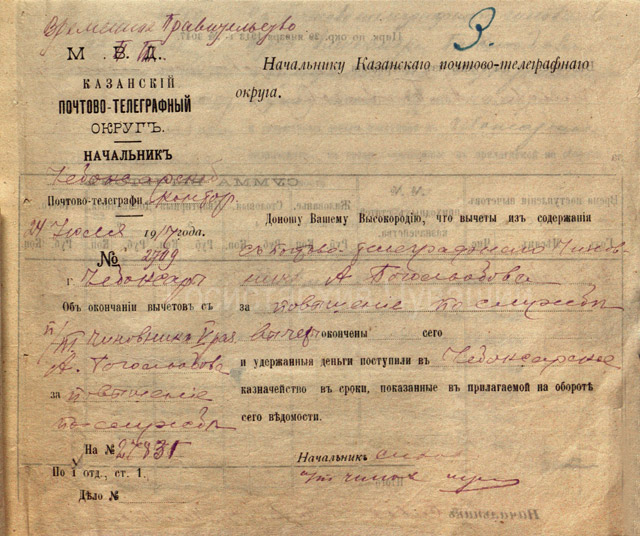 Временное Правительство
З.
М. В. Д.
КАЗАНСКІЙ
ПОЧТОВО-ТЕЛЕГРАФНЫЙ
ОКРУГЪ.
НАЧАЛЬНИКЪ
Чебоксарской
Почтово-телеграфн. контор.
24 Іюля 1917 года.
№ 2799
г. Чебоксары
Объ окончаніи вычетовъ съ
п/т чиновника
А. Боголюбова
за повышеніе
по службѣ
На № 27831
По I отд., ст. 1.
Дѣло №
Начальнику Казанскаго почтово-телеграфнаго
округа.
Доношу Вашему Высокородію, что вычеты изъ содержанія
почтово-телеграфнаго чинов
ника А Боголюбова
за повышеніе по службѣ
окончены сего
и удержанныя деньги поступили въ Чебоксарское
казначейство въ сроки, показанные въ прилагаемой на оборотѣ
сего вѣдомости.
Начальникъ